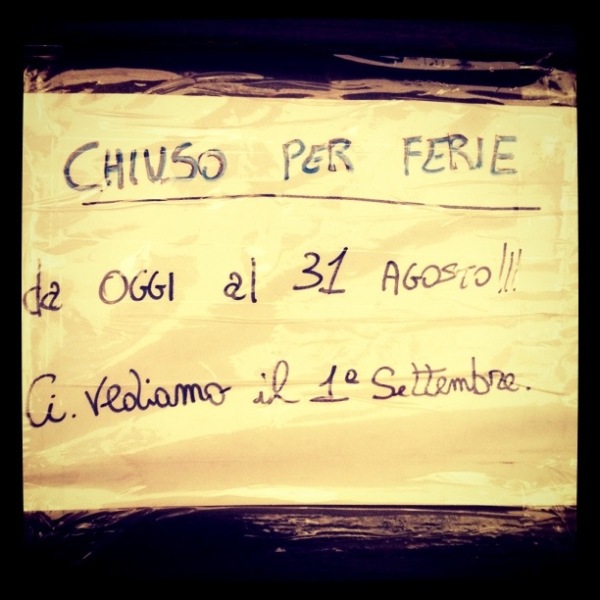 CHIUSO PER FERIE
da OGGI al 31 AGOSTO!!!
Ci. vediamo il 1ª Settembre.